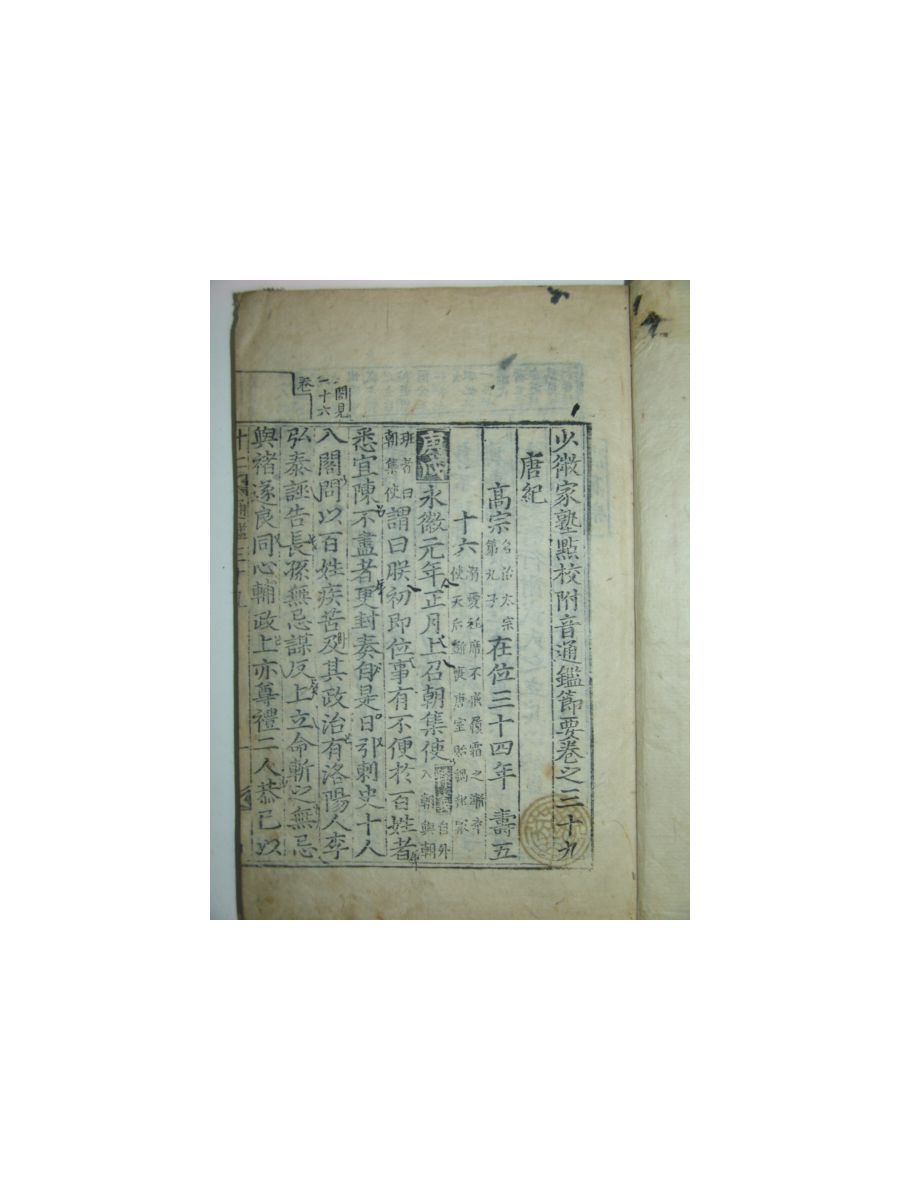 少微家塾點校附音通鑑節要卷之三十九
唐紀
高宗 名治太宗第九子 在位三十四年 壽五
十六 溺愛衽席不戒履霜之漸卒使天后斵喪唐室貽禍邦家
永徽元年正月上召朝集使 自外入朝與朝
班者曰朝集使 謂曰朕初即位事有不便於百姓者
悉宜陳不盡者更封奏自是日引刺史十人
入閤問以百姓疾苦及其政治有洛陽人李
弘泰誣告長孫無忌謀反上立命斬之無忌
與褚遂良同心輔政上亦尊禮二人恭己以
閤見
二十六
卷